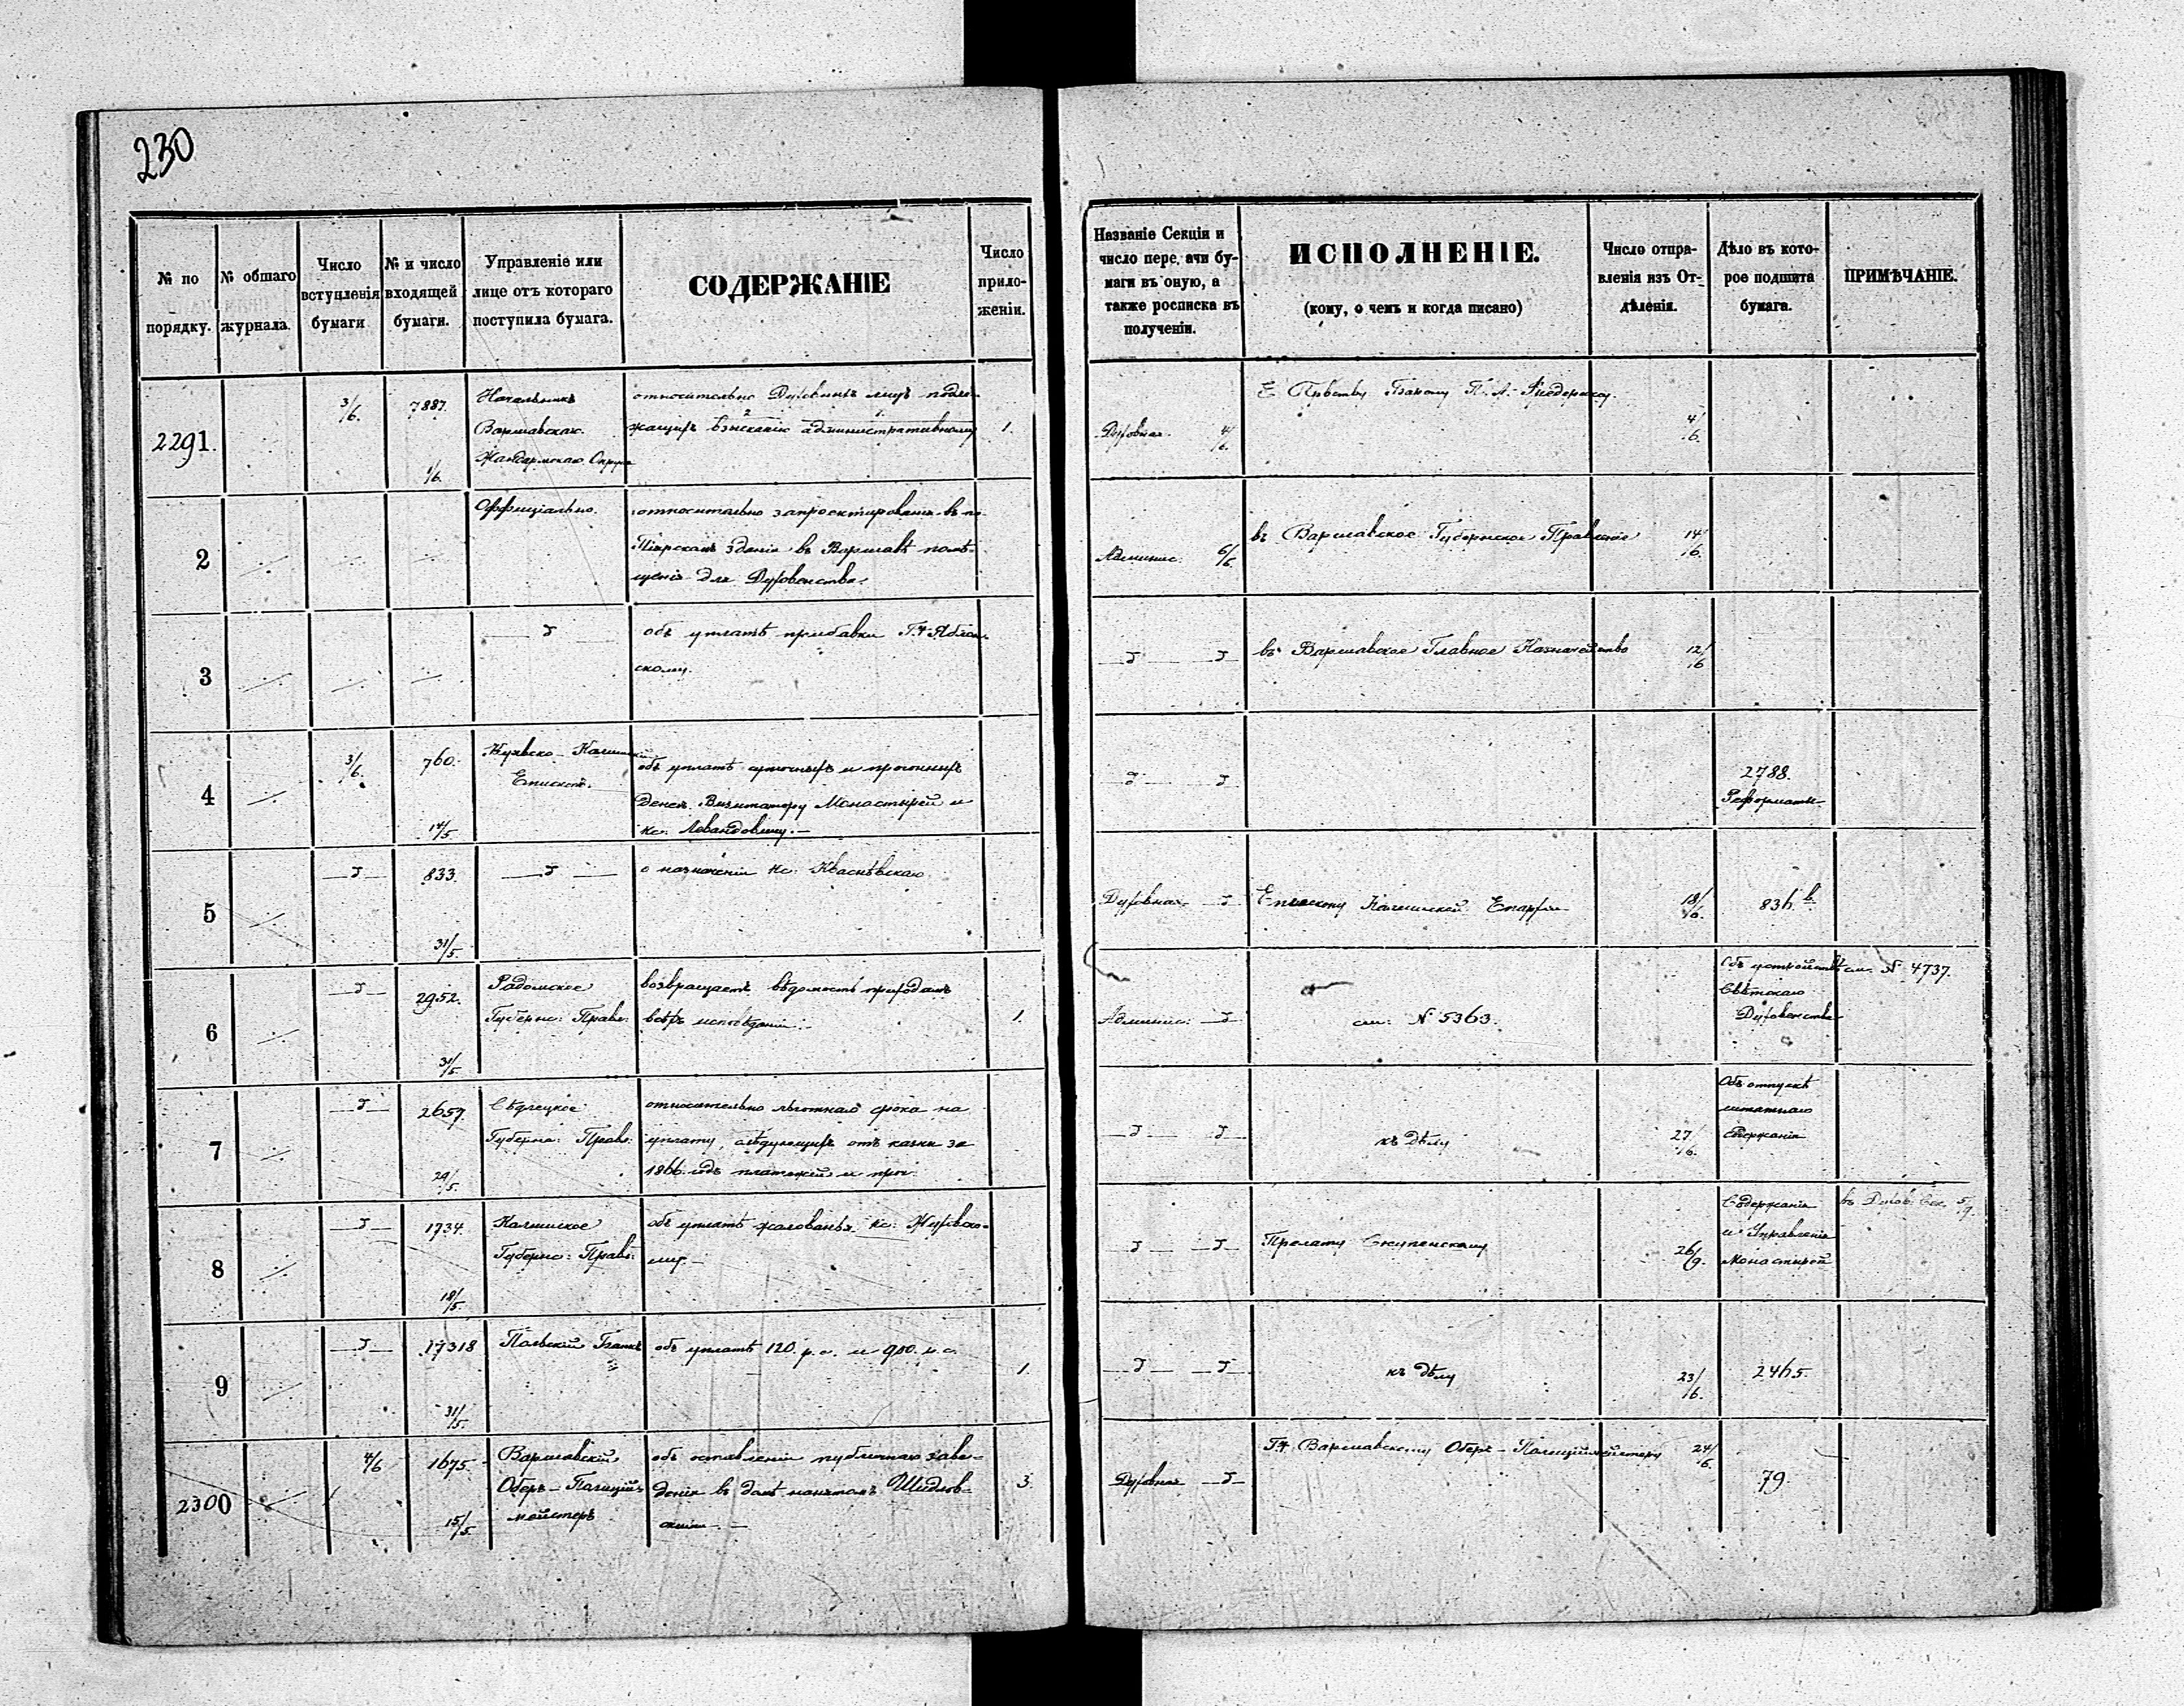 230
№ по порядку.
№ общаго журнала.
Число вступленія бумаги
№ и число входящей бумаги.
Управленіе или лице отъ котораго поступила бумага.
СОДЕРЖАНІЕ
Число приложеніи.
Названіе Секціи и число пере, ачи бумаги въ оную, а также росписка въ полученіи.
ИСПОЛНЕНІЕ.
(кому, о чемъ и когда писано)
Число отправленія изъ Отдѣленія.
Дѣло въ которое подшита бумага.
ПРИМѢЧАНІЕ.
2291.
3/6.
7887.
1/6.
Начальникъ
Варшавскаго
Жандармскаго Округа
относительно Духовныхъ лицъ подле-
жащихъ взысканію административному
1.
Духовная 4/6.
4/6.
2
Оффиціально.
относительно запроектированія въ по-
Піярскомъ зданіи въ Варшавѣ помѣ-
щенія для Духовенства.
Админис. 6/6
въ Варшавское Губернское Правленіе
14/6.
3
объ уплатѣ прибавки
скому.
въ Варшавское Главное Казначейство
12/6
4
3/6.
760.
14/5
Куявско-Калишскій
Епископъ.
объ уплатѣ суточныхъ и прогонныхъ
денегъ Визитатору Монастырей и
кс: Левандовску.
2788.
Реформаты
5
833.
31/5.
о назначеніи кс: Квасневскаго
Духовная
Епископу Калишской Епархіи
18/6.
836.
6
2952.
31/5.
Радомское
Губернс: Правл:
возвращаетъ вѣдомость приходамъ
всѣхъ исповѣданій.
1.
Админис:
см: № 5363.
Объ устройствѣ
Свѣтскаго
Духовенства
см. № 4737.
7
2657
29/5.
Сѣдлецкое
Губернс: Правл:
относительно льготнаго срока на
уплату, слѣдующихъ отъ казны за
1866 годъ платежей и проч.
къ дѣлу
27/6.
Объ отпускѣ
штатнаго
содержанія
8
1734.
18/5.
Калишское
Губернс: Правл:
объ уплатѣ жалованья кс: Жуховско-
му.
Прелату
26/9.
Содержаніе
и Управленіе
Монастырей
въ Духов. Сек. 5/9.
9
17318
31/5.
Польскій Банкъ
объ уплатѣ 120. р. с. и 900.
1.
къ дѣлу
23/6.
2465.
2300
4/6
1675
15/5.
Варшавскій
Оберъ-Полицій-
мейстеръ
объ оставленіи публичнаго заве-
денія въ домѣ нанятомъ Шидлов-
скимъ.
3.
Духовная
Гᵘ Варшавскому Оберъ-Полиціймейстеру
24/6.
79.